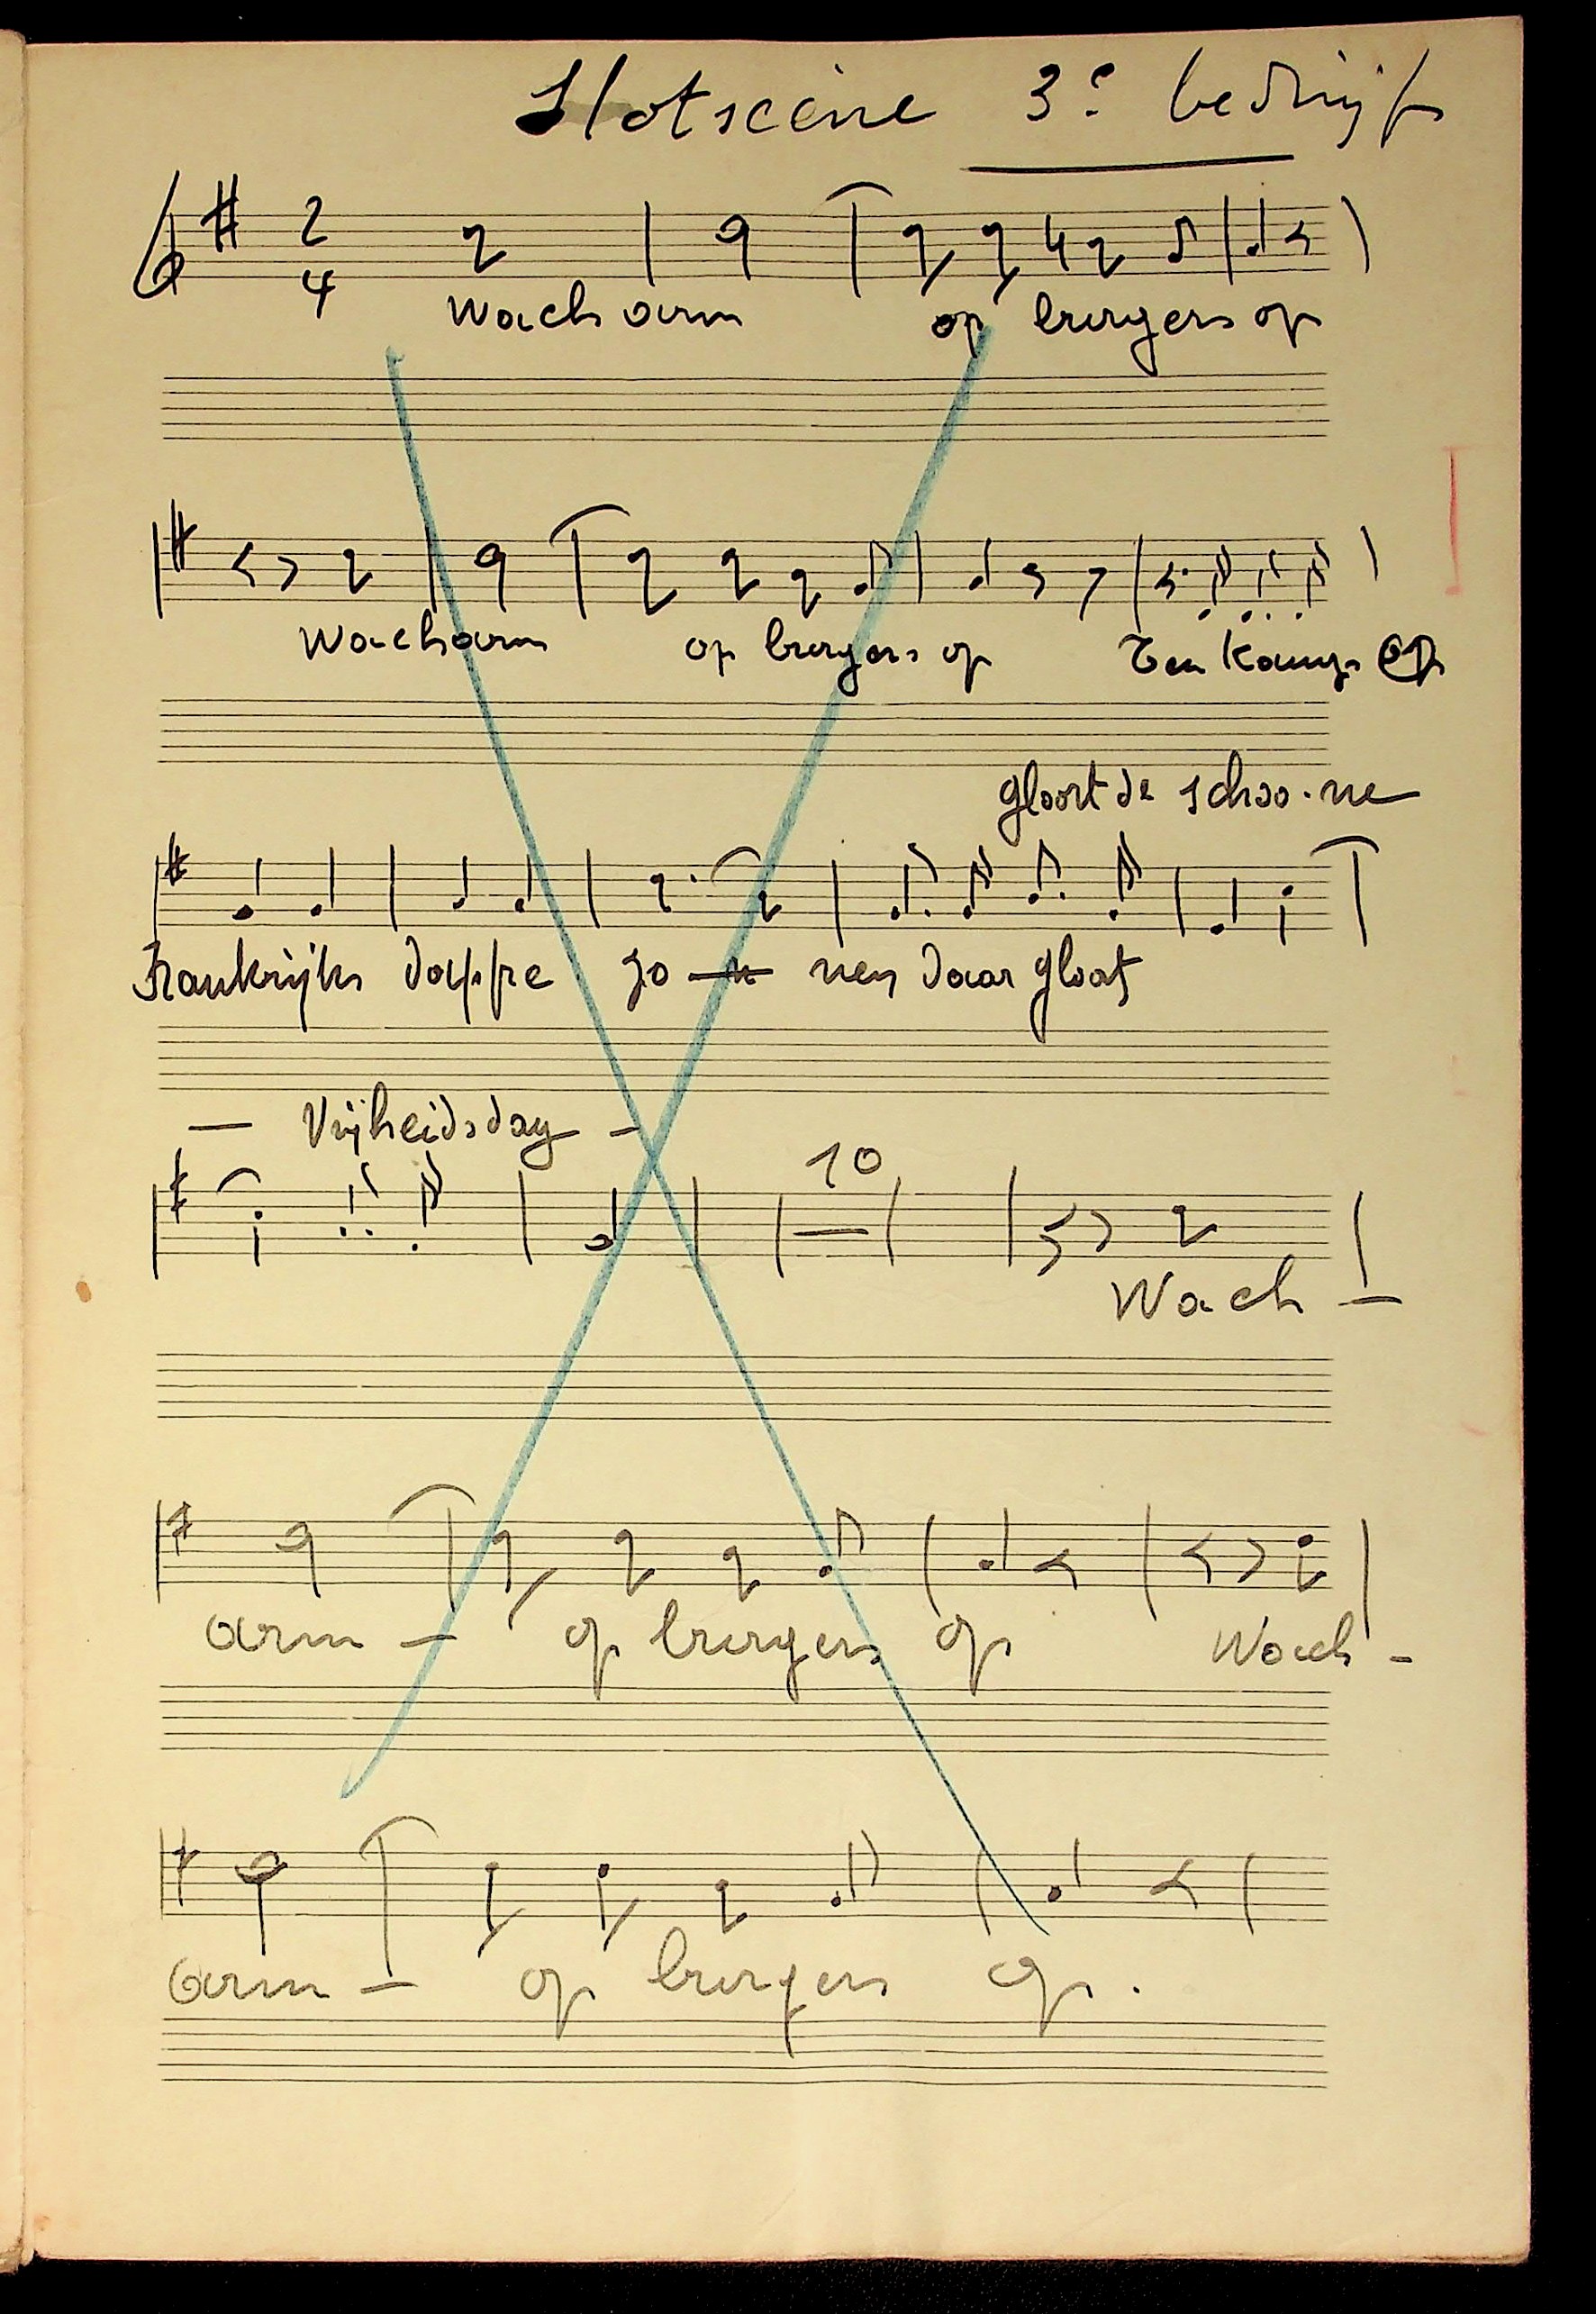 Slotscène 3e bedrijf
2
4
Wach arm op burgers op
Wach arm op burgers op Ten Kamp op
gloort de schoo-ne
Frankrijks dappre zo — nen daar gloort
— Vrijheidsdag —
10
Wach —
arm — op burgers op Wach -
arm — op burgers op.